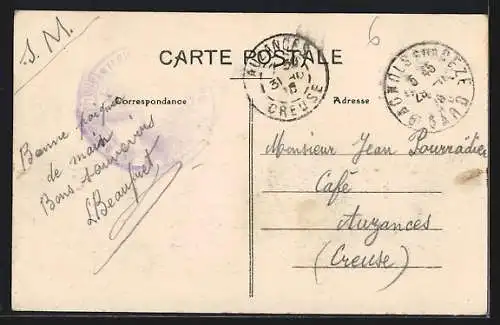 S. M.
6
CARTE POSTALE
AUZANCES
31
CREUSE
BAGNOLS SUR CEZE
GARD
Correspondance
Adresse
Bonne poignée
de main
Bons souvenirs
LBeaufret
Monsieur Jean Pourradier
Café
Auzances
(Creuse)